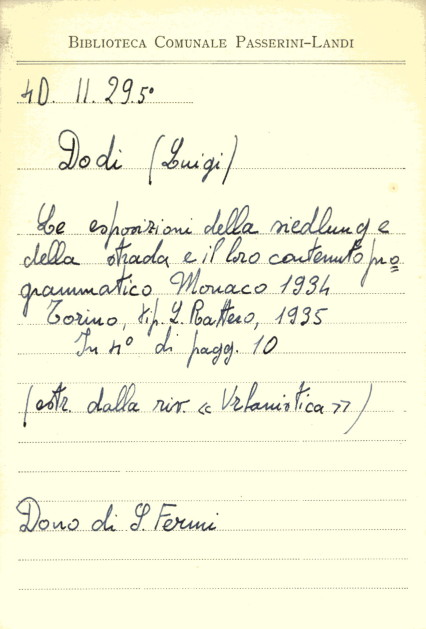 BIBLIOTECA COMUNALE PASSERINI-LANDI
4D. II. 29.5°
Dodi (Luigi)
Le esposizioni della siedlung e
della strada e il loro contenuto pro=
grammatico Monaco 1934
Torino, tip. L. Rattero, 1935
In 4° di pagg. 10
(estr. dalla riv. « Urbanistica »)
Dono di S. Fermi